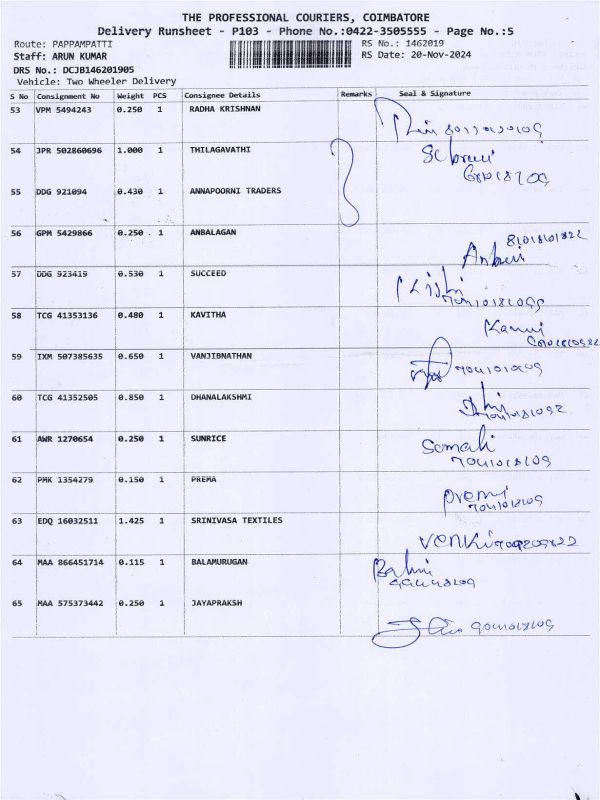 THE PROFESSIONAL COURIERS, COIMBATORE
Delivery Runsheet - P103 - Phone No.:0422-3505555 - Page No.:5
Route: PAPPAMPATTI RS No.: 1462019
Staff: ARUN KUMAR RS Date: 20-Nov-2024
DRS No.: DCJB146201905
Vehicle: Two Wheeler Delivery
S No Consignment No Weight PCS Consignee Details Remarks Seal & Signature
53 VPM 5494243 0.250 1 RADHA KRISHNAN
54 JPR 502860696 1.000 1 THILAGAVATHI
55 DDG 921094 0.430 1 ANNAPOORNI TRADERS
56 GPM 5429866 0.250 1 ANBALAGAN
57 DDG 923419 0.530 1 SUCCEED
58 TCG 41353136 0.480 1 KAVITHA
59 IXM 507385635 0.650 1 VANJIBNATHAN
60 TCG 41352505 0.850 1 DHANALAKSHMI
61 AWR 1270654 0.250 1 SUNRICE
62 PMK 1354279 0.150 1 PREMA
Premi
63 EDQ 16032511 1.425 1 SRINIVASA TEXTILES
Venki
64 MAA 866451714 0.115 1 BALAMURUGAN
65 MAA 575373442 0.250 1 JAYAPRAKSH